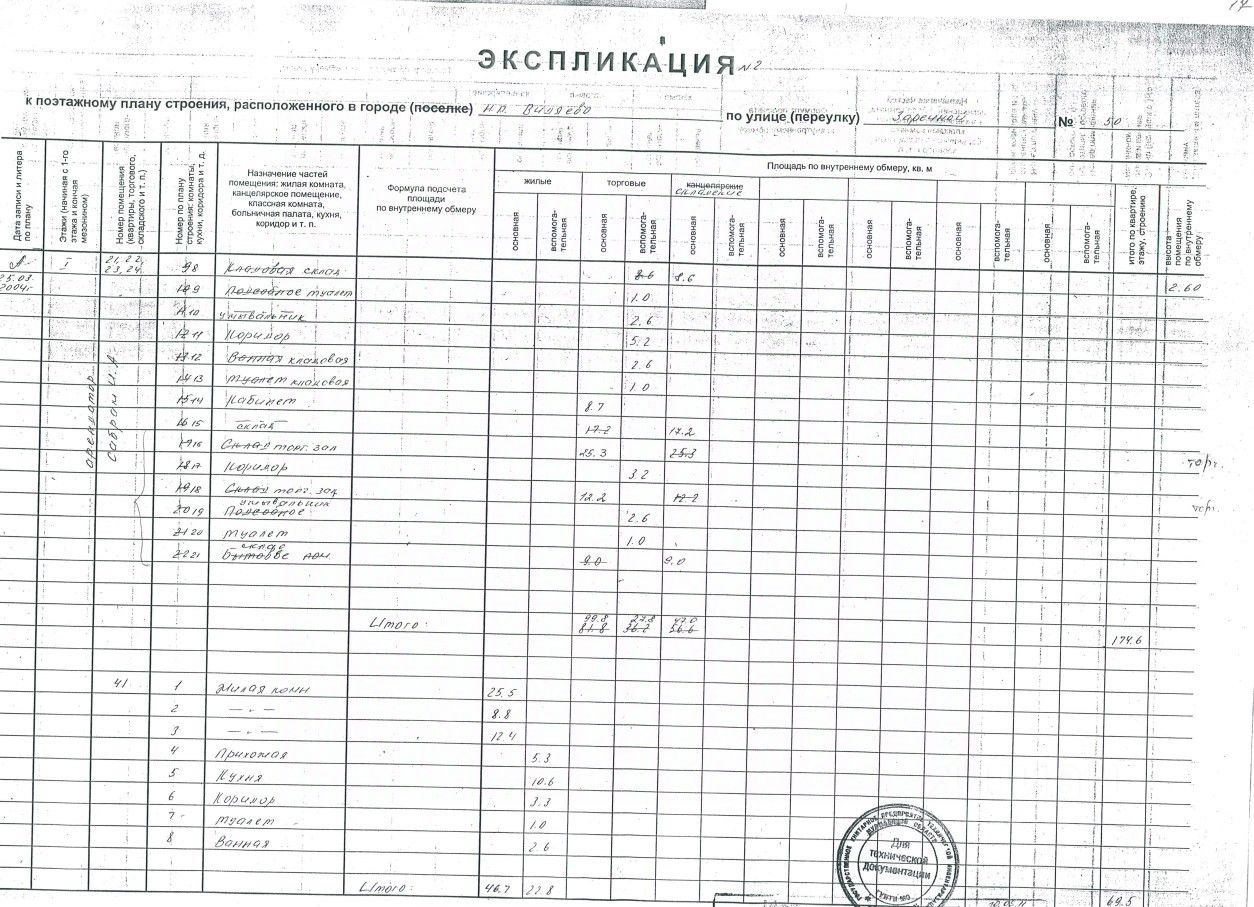 ЭКСПЛИКАЦИЯ №2
к поэтажному плану строения, расположенного в городе (поселке) Н.п. Видяево по улице (переулку) Заречная № 50
Дата записи и литера по плану
Этажи (начиная с 1-го этажа и кончая мезонином)
Номер помещения (квартиры, торгового, складского и т. п.)
Номер по плану строения: комнаты, кухни, коридора и т. д.
Назначение частей помещения: жилая комната, канцелярское помещение, классная комната, больничная палата, кухня, коридор и т. п.
Формула подсчета площади по внутреннему обмеру
Площадь по внутреннему обмеру, кв. м
жилые торговые канцелярские
основная вспомогательная основная вспомогательная основная вспомогательная основная вспомогательная основная вспомогательная основная вспомогательная основная вспомогательная
итого по квартире, этажу, строению
высота помещения по внутреннему обмеру
А I 21, 22, 23, 24 9 8 Кладовая склад 8.6 8.6
25.03 2004г 10 9 Подсобное туалет 1.0 2.60
11 10 умывальник 2.6
12 11 Коридор 5.2
13 12 Ванная кладовая 2.6
14 13 Туалет кладовая 1.0
15 14 Кабинет 8.7
16 15 склад 17.2 17.2
17 16 Склад торг. зал 25.3 25.3
18 17 Коридор 3.2 торг.
19 18 Склад торг. зал 12.2 12.2
20 19 Подсобное умывальник 2.6 торг.
21 20 Туалет 1.0
22 21 Бытовое пом склад 9.0 9.0
арендатор
Итого: 99.8 27.8 47.0
81.8 36.2 56.6
174.6
41 1 Жилая комн 25.5
2 — " — 8.8
3 — " — 12.4
4 Прихожая 5.3
5 Кухня 10.6
6 Коридор 3.3
7 Туалет 1.0
8 Ванная 2.6
Итого: 46.7 22.8 69.5
Для
технической
документации